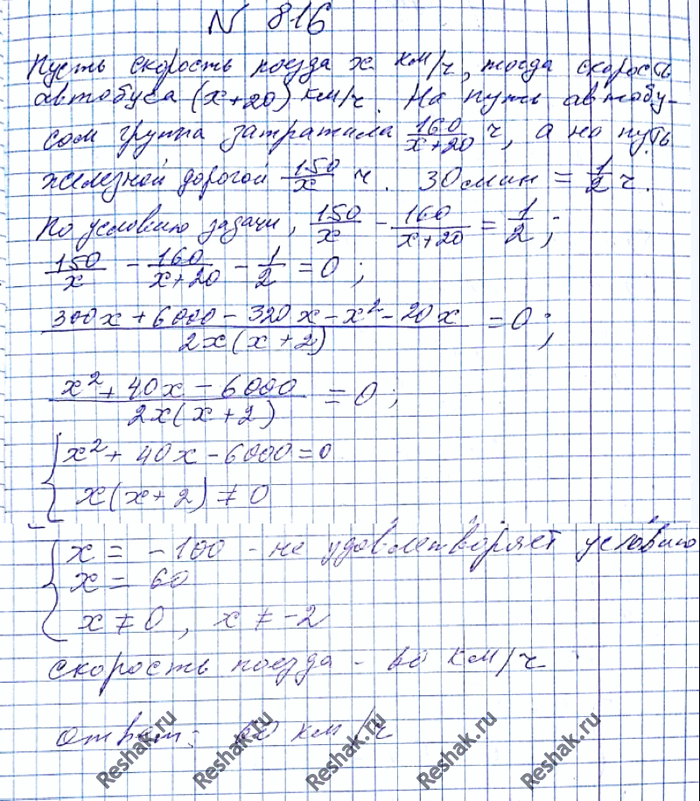 № 816
Пусть скорость поезда x км/ч, тогда скорость
автобуса (x+20) км/ч. На путь автобу-
сом группа затратила 160/(x+20) ч, а на путь
железной дорогой 150/x ч. 30 мин = 1/2 ч.
По условию задачи, 150/x - 160/(x+20) = 1/2;
150/x - 160/(x+20) - 1/2 = 0;
(300x + 6000 - 320x - x² - 20x)/(2x(x+2)) = 0;
(x² + 40x - 6000)/(2x(x+2)) = 0;
{ x² + 40x - 6000 = 0
x(x+2) ≠ 0
{ x = -100 - не удовлетворяет условию
x = 60
x ≠ 0, x ≠ -2
скорость поезда - 60 км/ч.
ответ: 60 км/ч
Reshak.ru Reshak.ru Reshak.ru Reshak.ru Reshak.ru